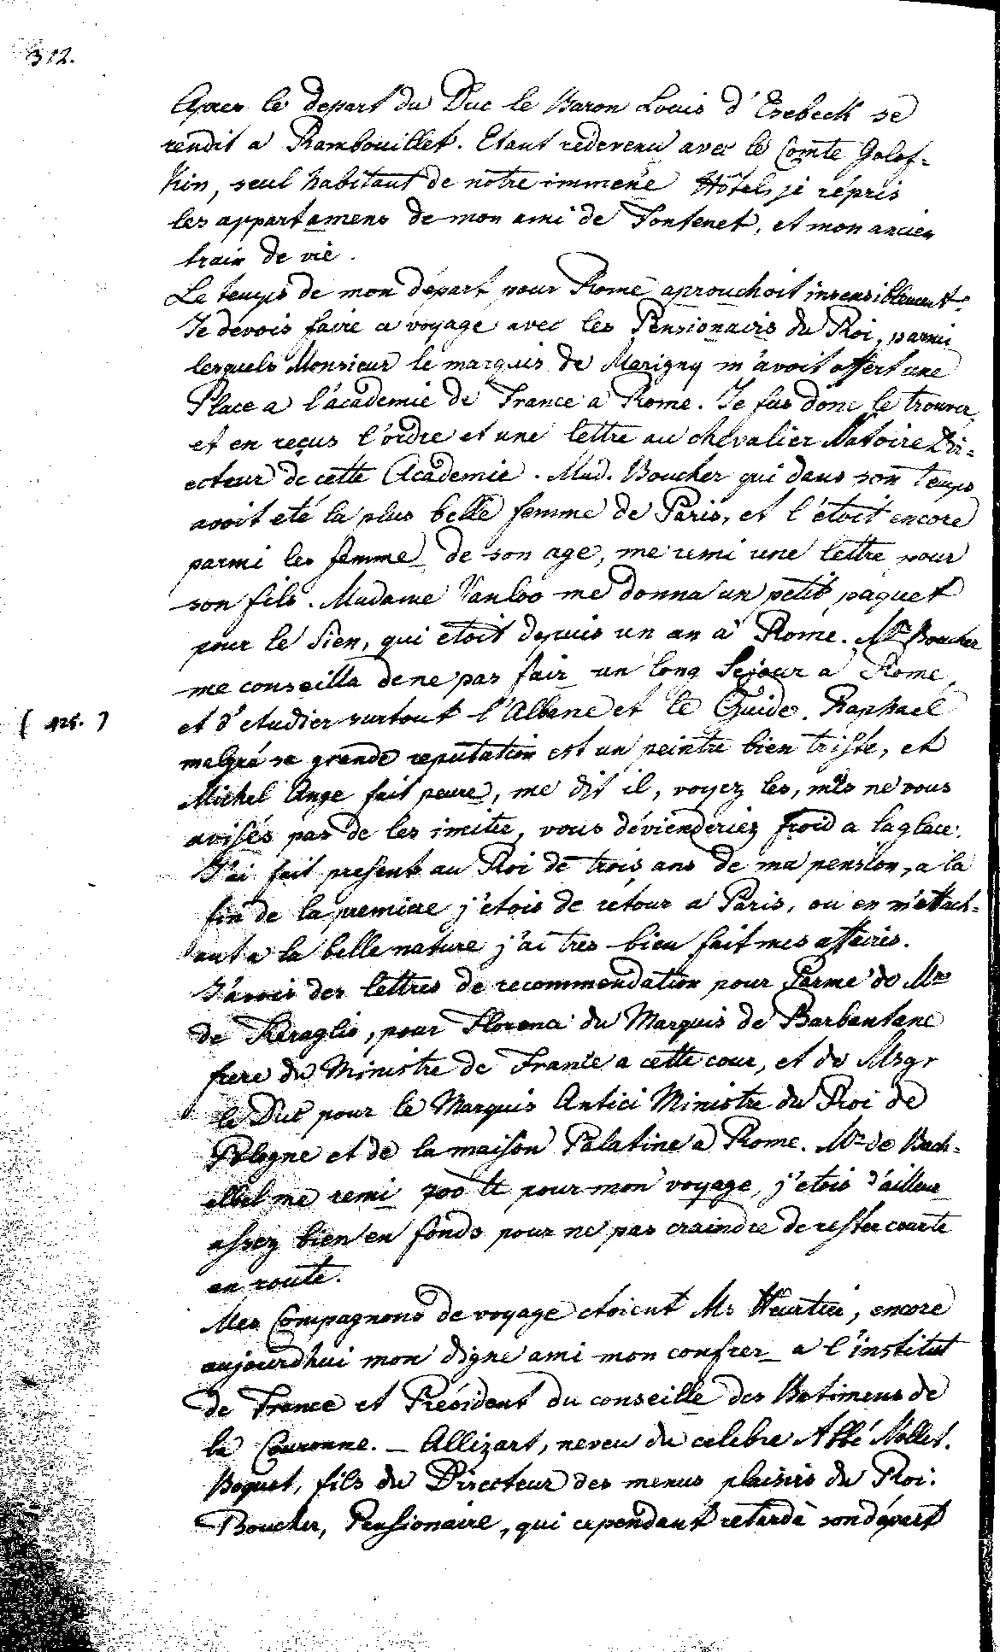 312.
Apres le depart du Duc le Baron Louis d'Esebeck se
rendit a Rambouillet. Etant redevenu avec le Comte Golof-
kin, seul habitant de notre immense Hôtel, je répris
les appartamens de mon ami de Fontenet, et mon ancien
train de vie.
Le temps de mon départ pour Rome aprouchoit insensiblement.
Je devois faire ce voyage avec les Pensionairs du Roi, parmi
lesquels Monsieur le marquis de Marigny m'avoit offert une
Place a l'académie de France a Rome. Je fus donc le trouver,
et en reçus l'ordre et une lettre au chevalier Natoire Di-
ecteur de cette Academie. Mad. Boucher qui dans son temps
avoit eté la plus belle femme de Paris, et l'étoit encore
parmi les femme de son age, me remi une lettre pour
son fils. Madame Vanloo me donna un petit paquet
pour le Sien, qui etoit depuis un an a Rome. Mr. Boucher
me conseilla de ne pas fair un long Sejour a Rome,
et d'etudier surtout l'Albane et le Guide. Raphael
( 425. )
malgré sa grande reputation est un peintre bien triste, et
Michel Ange fait peure, me dit il, voyez les, mais ne vous
avisés pas de les imiter, vous dévienderiez froid a la glace.
J'ai fait present au Roi de trois ans de ma pension, a la
fin de la premiere j'etois de rétour a Paris, ou en m'attach-
ant a la belle nature j'ai tres bien fait mes affairis.
J'avois des lettres de recommendation pour Parme de Mr
de Keraglio, pour Florence du Marquis de Barbentane
frere du Ministre de France a cette cour, et de Msgr
le Duc pour le Marquis Antici Ministre du Roi de
Pologne et de la maison Palatine a Rome. Mr de Bach-
elbel me remi 700 lt pour mon voyage, j'etois d'ailleur
assez bien en fonds pour ne pas craindre de rester courte
en route.
Mes Compagnons de voyage etoient Mr Heurtier, encore
aujourdhui mon digne ami mon confrer a l'institut
de France et Président du conseille des Batimens de
la Couronne. _ Allizart, neveu du celebre Abbé Nollet.
Boquet, fils du Directeur des menus plaisirs du Roi.
Boucher, Pensionaire, qui cependant retarda son départ